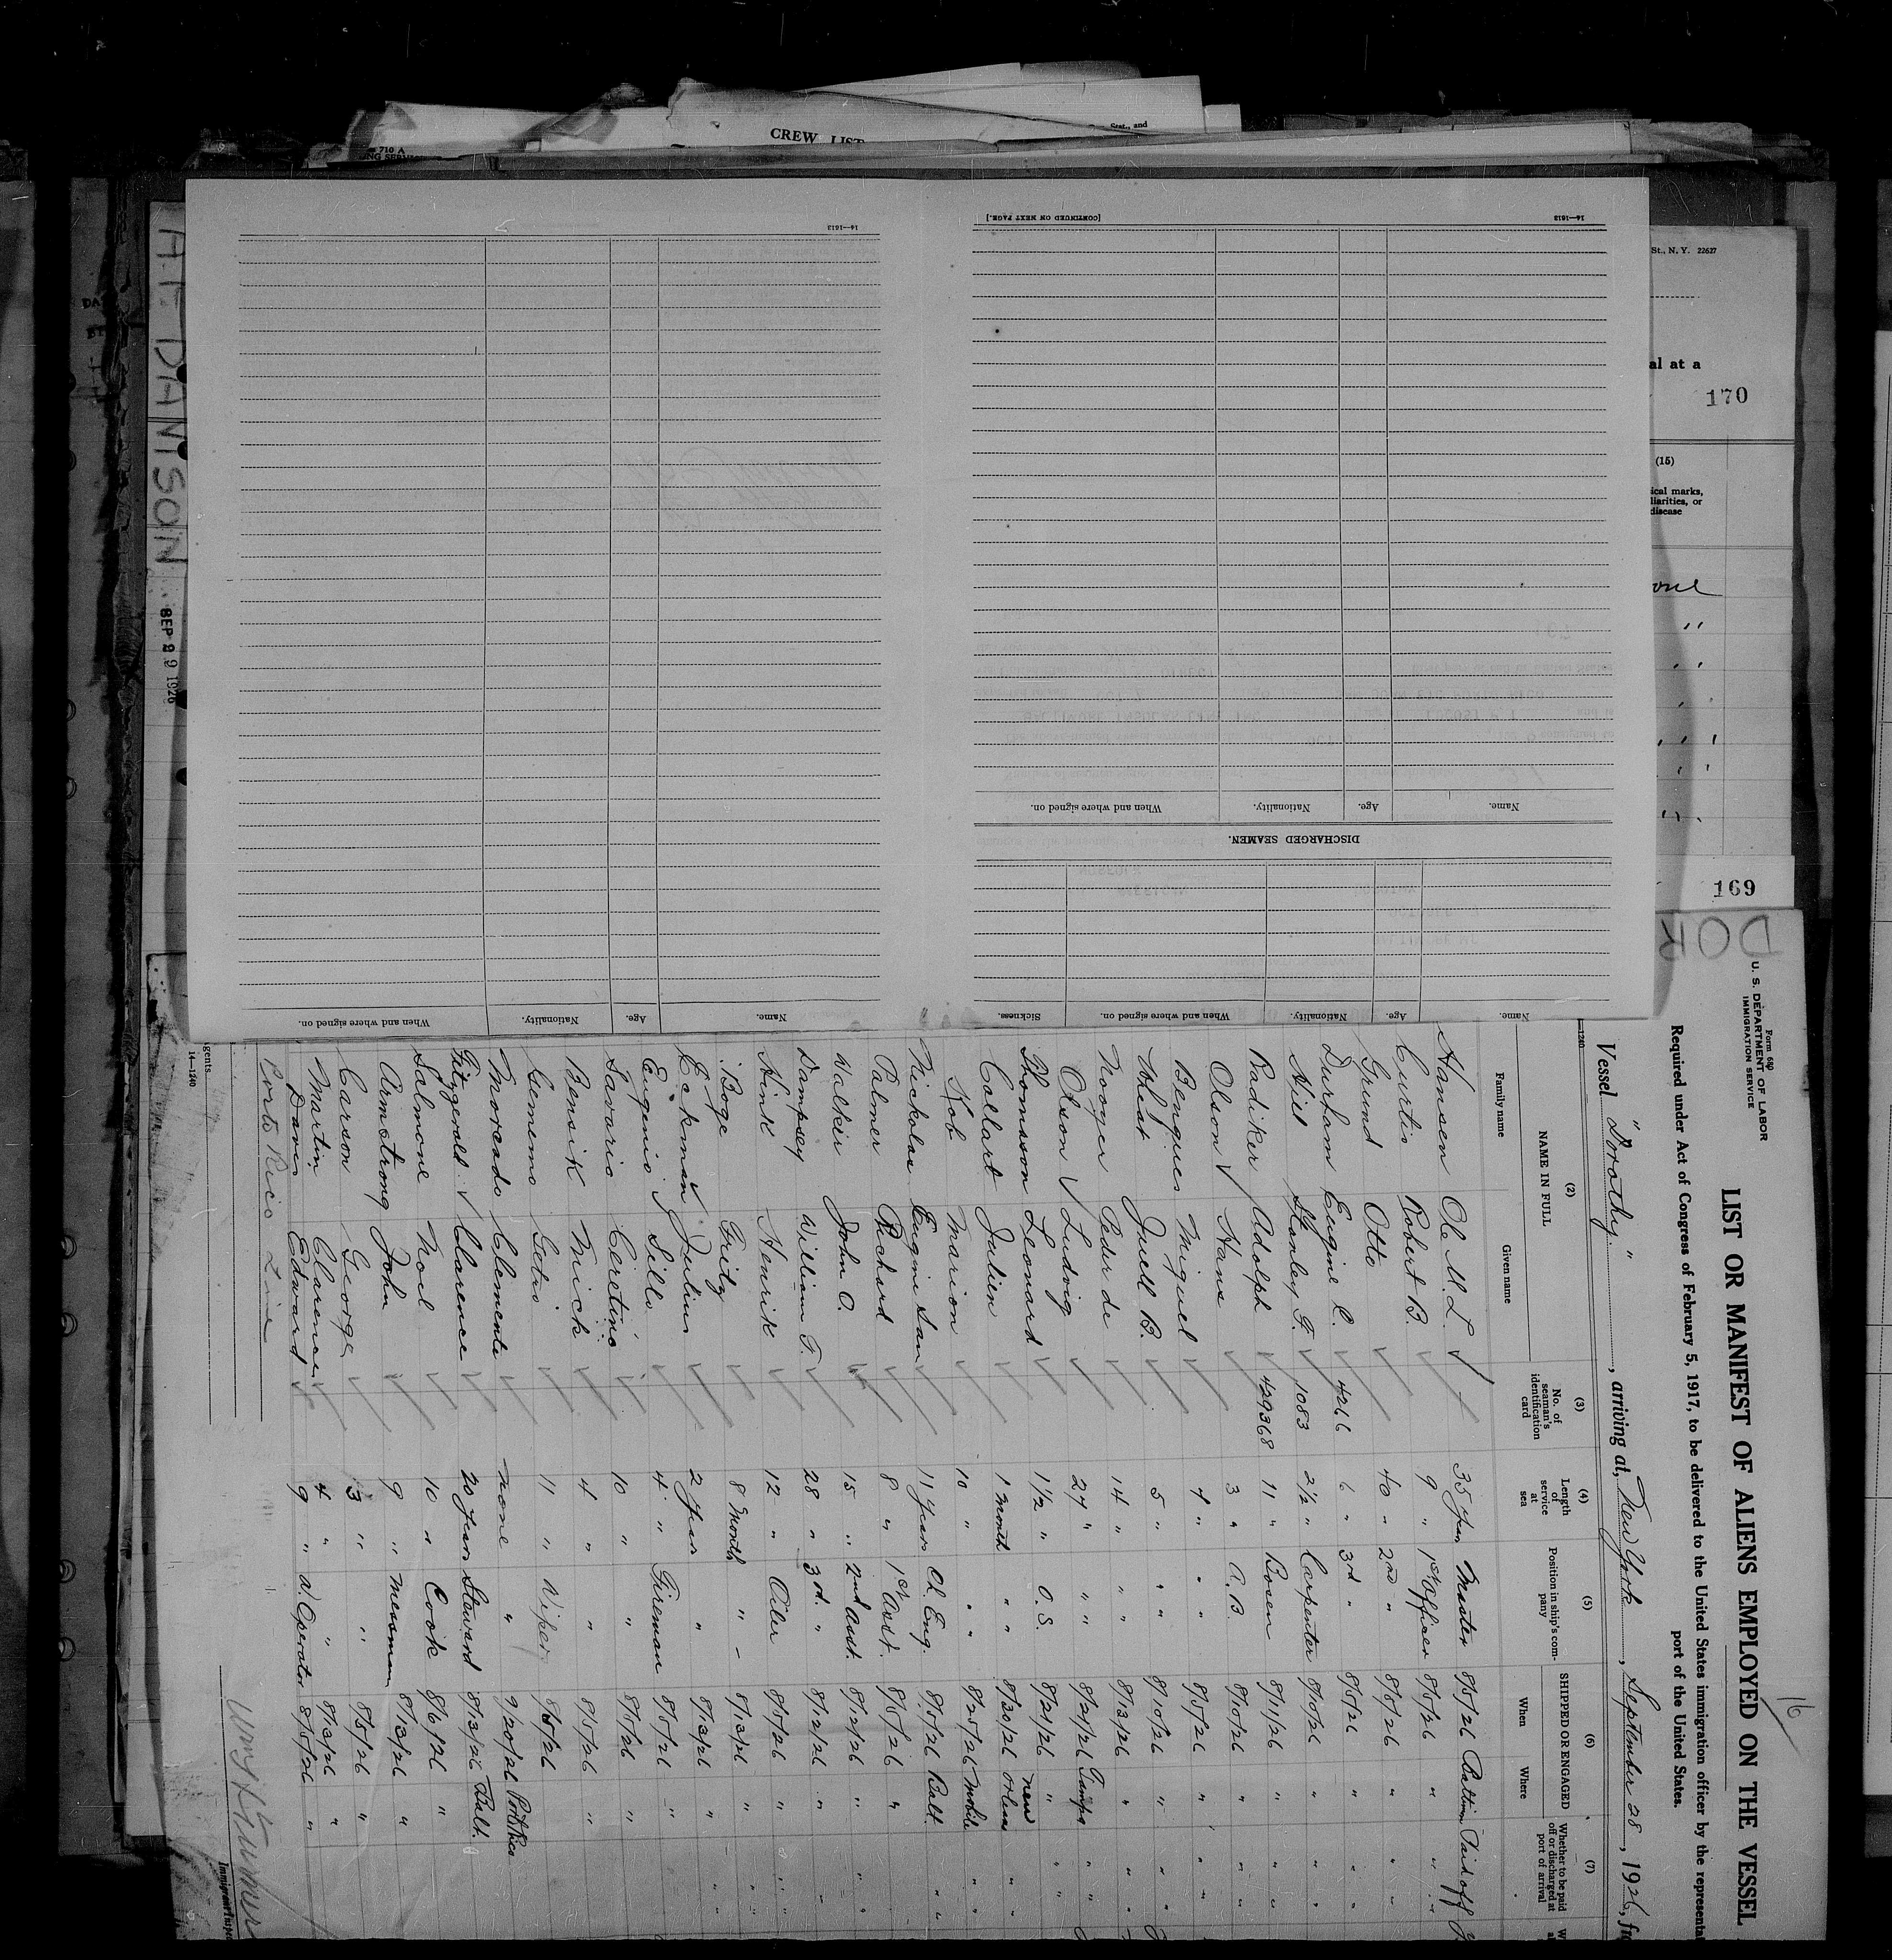 CREW LIST
Stat., and
710 A
St., N. Y. 22627
al at a
170
(15)
ical marks,
liarities, or
disease
169
DOR
SEP 29 1926
[CONTINUED ON NEXT PAGE.]
14—1613
14—1613
Name. Age. Nationality. When and where signed on.
DISCHARGED SEAMEN.
Name. Age. Nationality. When and where signed on. Sickness.
Name. Age. Nationality. When and where signed on.
16
Form 680
U. S. DEPARTMENT OF LABOR
IMMIGRATION SERVICE
LIST OR MANIFEST OF ALIENS EMPLOYED ON THE VESSEL
Required under Act of Congress of February 5, 1917, to be delivered to the United States immigration officer by the representa
port of the United States.
Vessel "Dorothy", arriving at, New York, September 28, 1926, fr
(2) (3) (4) (5) (6) (7)
NAME IN FULL
Family name Given name
No. of seaman's identification card
Length of service at sea
Position in ship's company
SHIPPED OR ENGAGED
When Where
Whether to be paid off or discharged at port of arrival
Hansen Ole M. L. 35 Year Master 8/5/26 Baltimore Paid off
Curtis Robert B. 9 " 1st Officer 8/5/26 " "
Grund Otto 40 " 2nd " 8/5/26 " "
Durham Eugine C. 4266 6 " 3rd " 8/5/26 " "
Hill Stanley F. 1083 2½ " Carpenter 8/10/26 " "
Radiker Adolph 429368 11 " Bosen 8/11/26 " "
Olson Hans 3 " A.B. 8/10/26 " "
Bengues Miguel 4 " " 8/5/26 " "
Wheat Juell B. 5 " " 8/10/26 " "
Nooger Peder de 14 " " 8/13/26 " "
Olson Ludvig 27 " " 8/21/26 Tampa "
Thomasson Leonard 1½ " O.S. 8/21/26 " "
Callart Julien 1 month " 8/30/26 New Orleans "
Kob Marion 10 " " 8/25/26 Mobile "
Nickolas Eugin San 11 Year Ch. Eng. 8/5/26 Balt. "
Palmer Richard 8 " 1st Asst. 8/5/26 "
Walker John O. 15 " 2nd Asst. 8/12/26 " "
Dampsey William F. 28 " 3rd. " 8/12/26 " "
Hink Henrik 12 " Oiler 8/5/26 " "
Boge Fritz 8 Month " 8/13/26 " "
Eckman Julius 2 Year " 8/13/26 " "
Eugenio Sills 4 " Fireman 8/5/26 "
Savario Ceretino 10 " " 8/5/26 "
Bensik Mick 4 " " 8/5/26 "
Gemeno Getis 11 " Wiper 8/5/26
Moreado Clemente None " 9/20/26 Porto Rico
Fitzgerald Clarence 20 Year Steward 8/13/26 Balt.
Salmone Noel 10 " Cook 8/6/26 "
Armstrong John 9 " Messman 8/13/26 "
Carson George 3 " " 8/5/26 "
Martin Clarence 4 " " 8/13/26 "
Davis Edward 9 " W Operator 8/5/26 "
Porto Rico Line
gents
14—1240
Immigrant Inspe